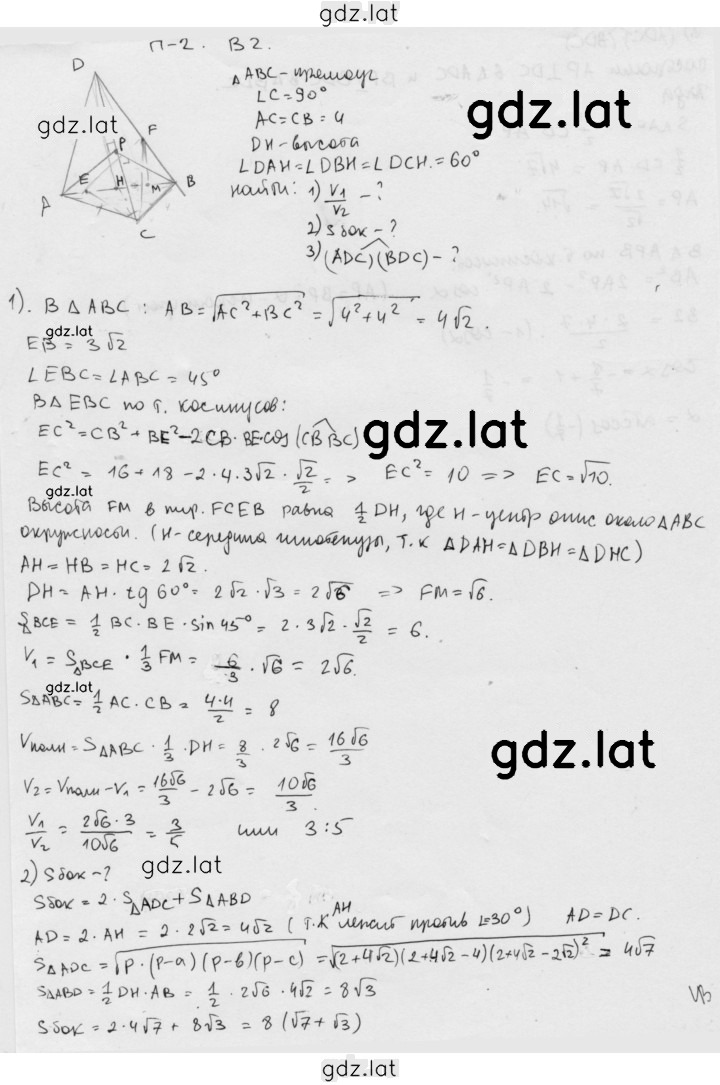 gdz.lat
П-2. В2.
D
△ABC - прямоуг
∠C=90°
AC=CB=4
DH-высота
∠DAH=∠DBH=∠DCH=60°
найти: 1) V₁/V₂ - ?
2) Sбок - ?
3) (ADC)^(BDC) - ?
gdz.lat
gdz.lat
F
P
E
H
M
B
A
C
1). В △ABC: AB=√(AC²+BC²)=√(4²+4²)=4√2.
gdz.lat
EB=3√2
∠EBC=∠ABC=45°
В △EBC по т. косинусов:
EC²=CB²+BE²-2CB·BE·cos(CB^BC)
gdz.lat
EC²=16+18-2·4·3√2·√2/2=> EC²=10 => EC=√10.
Высота FM в пир. FCEB равна 1/2 DH, где H-центр опис около △ABC
окружности. (H-середина гипотенузы, т.к △DAH=△DBH=△DHC)
AH=HB=HC=2√2.
DH=AH·tg60°=2√2·√3=2√6 => FM=√6.
S BCE=1/2 BC·BE·sin45°=2·3√2·√2/2=6.
V₁=S△BCE·1/3 FM=6/3·√6=2√6.
gdz.lat
S△ABC=1/2 AC·CB=4·4/2=8
Vполн=S△ABC·1/3·DH=8/3·2√6=16√6/3
gdz.lat
V₂=Vполн-V₁=16√6/3-2√6=10√6/3.
V₁/V₂=2√6·3/10√6=3/5 или 3:5
gdz.lat
2) Sбок-?
Sбок=2·S△ADC+S△ABD
AD=2·AH=2·2√2=4√2 (т.к AH лежит против ∠=30°) AD=DC.
S△ADC=√(p·(p-a)(p-b)(p-c))=√((2+4√2)(2+4√2-4)(2+4√2-2√2)²)=4√7
S△ABD=1/2 DH·AB=1/2·2√6·4√2=8√3
Sбок=2·4√7+8√3=8(√7+√3)
gdz.lat